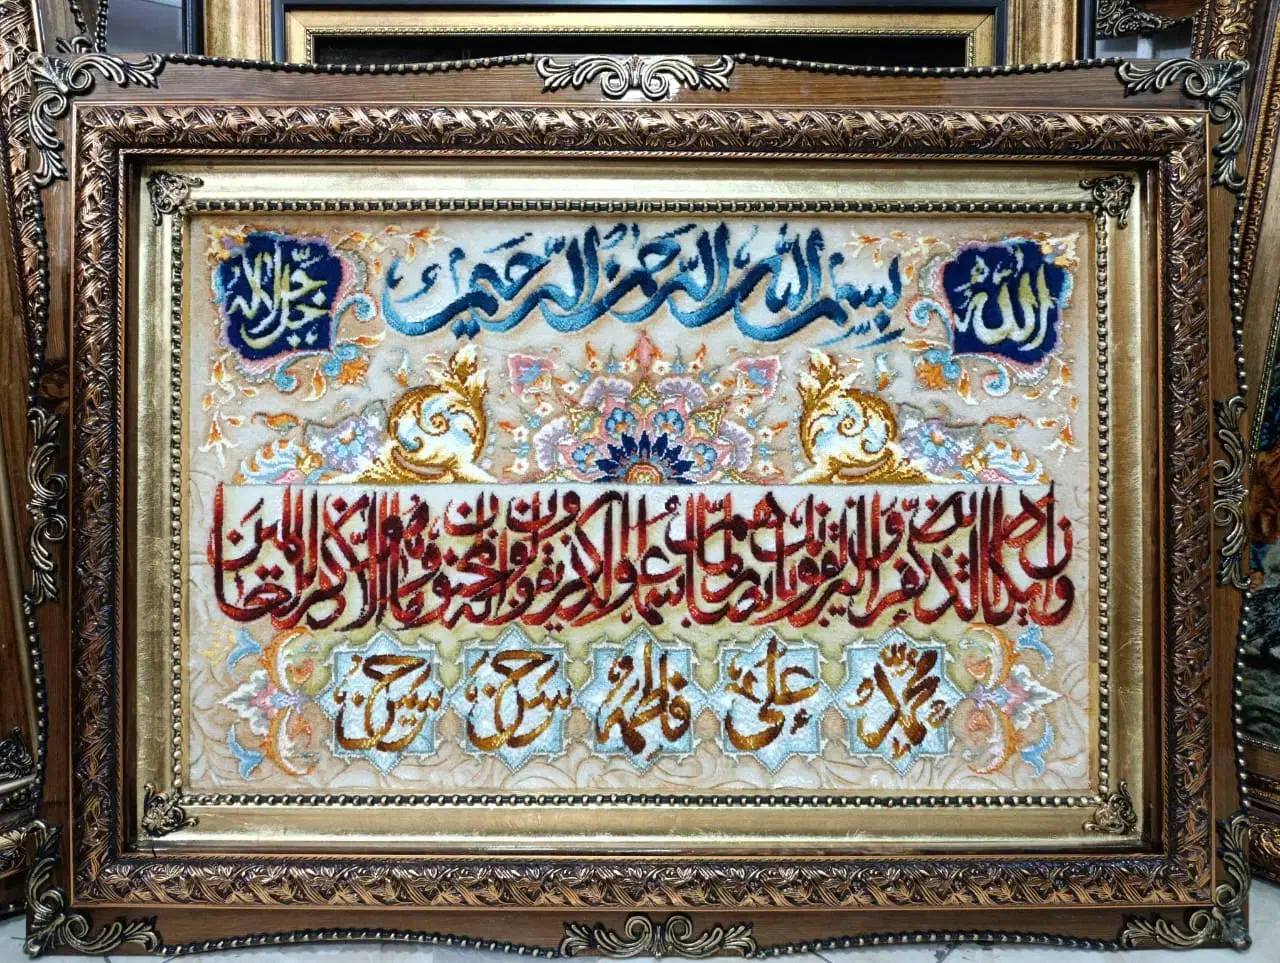 الله
بسم الله الرحمن الرحيم
جل جلاله
وان يكاد الذين كفروا ليزلقونك بابصارهم لما سمعوا الذكر ويقولون انه لمجنون وما هو الا ذكر للعالمين
محمد علی فاطمه حسن حسین